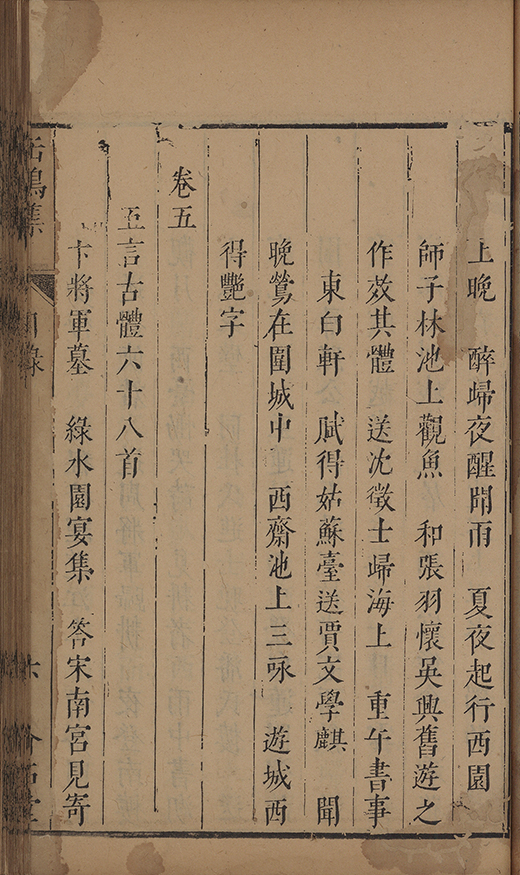 上晚　醉歸夜醒聞雨　夏夜起行西園
師子林池上觀魚　和張羽懷吳興舊遊之
作效其體　送沈徵士歸海上　重午書事
東白軒　賦得姑蘇臺送賈文學麒　聞
晚鶯在圍城中　西齋池上三咏　遊城西
得艷字
卷五
五言古體六十八首
卞將軍墓　綠水園宴集　答宋南宮見寄
鳴集
目錄